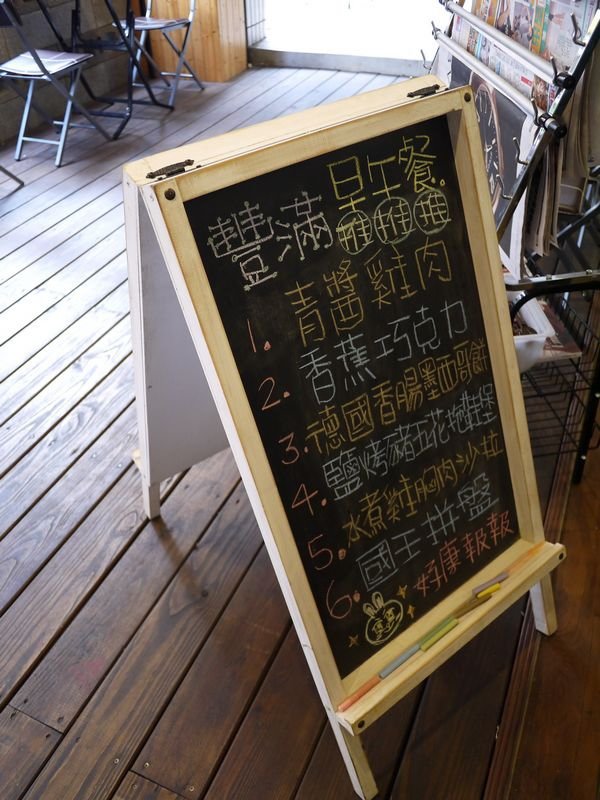 豐滿早午餐
推推推
1. 青醬雞肉
2. 香蕉巧克力
3. 德國香腸墨西哥餅
4. 鹽烤豬五花拖鞋堡
5. 水煮雞胸肉沙拉
6. 國王拼盤
好康報報